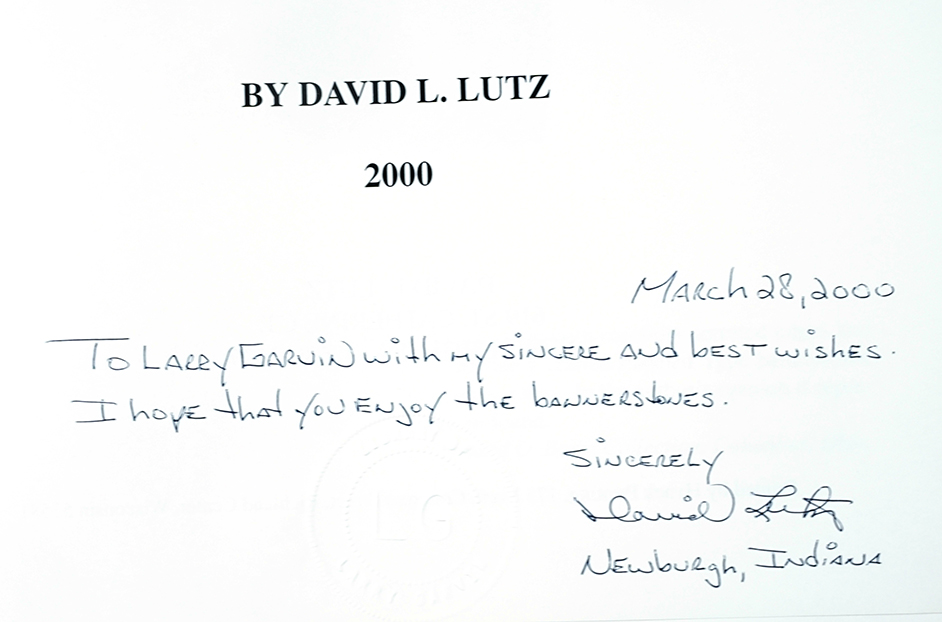 BY DAVID L. LUTZ
2000
March 28, 2000
To Larry Garvin with my sincere and best wishes.
I hope that you enjoy the bannerstones.
Sincerely
David Lutz
Newburgh, Indiana
LG